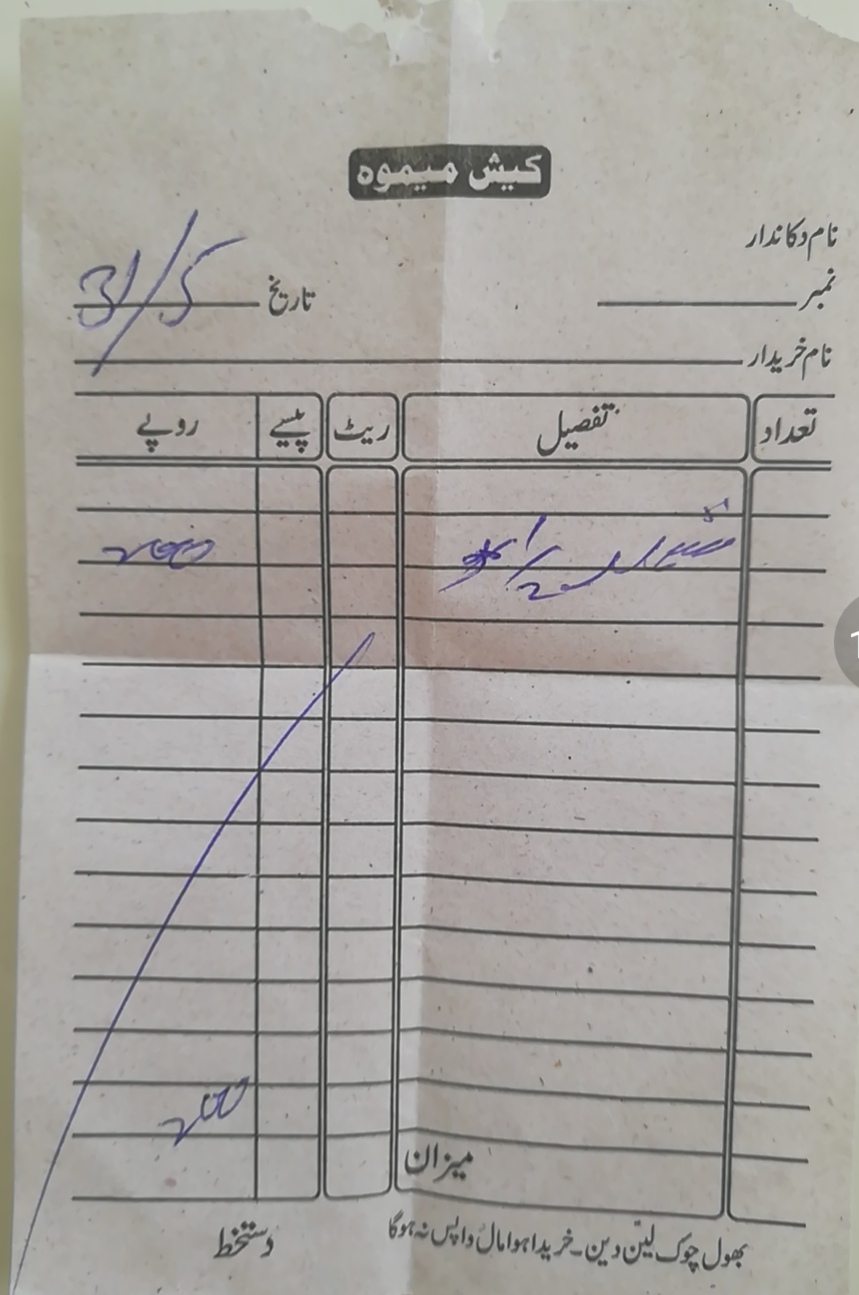 کیش میموہ
نام دکاندار
نمبر
تاریخ 31/5
نام خریدار
تعداد تفصیل ریٹ پیسے روپے
200
200
میزان
بھول چوک لین دین۔ خریدا ہوا مال واپس نہ ہوگا
دستخط